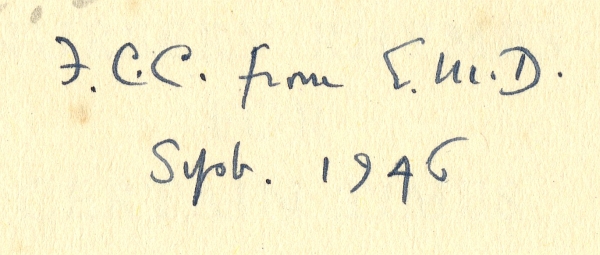 F.C.C. from E.M.D.
Sept. 1946